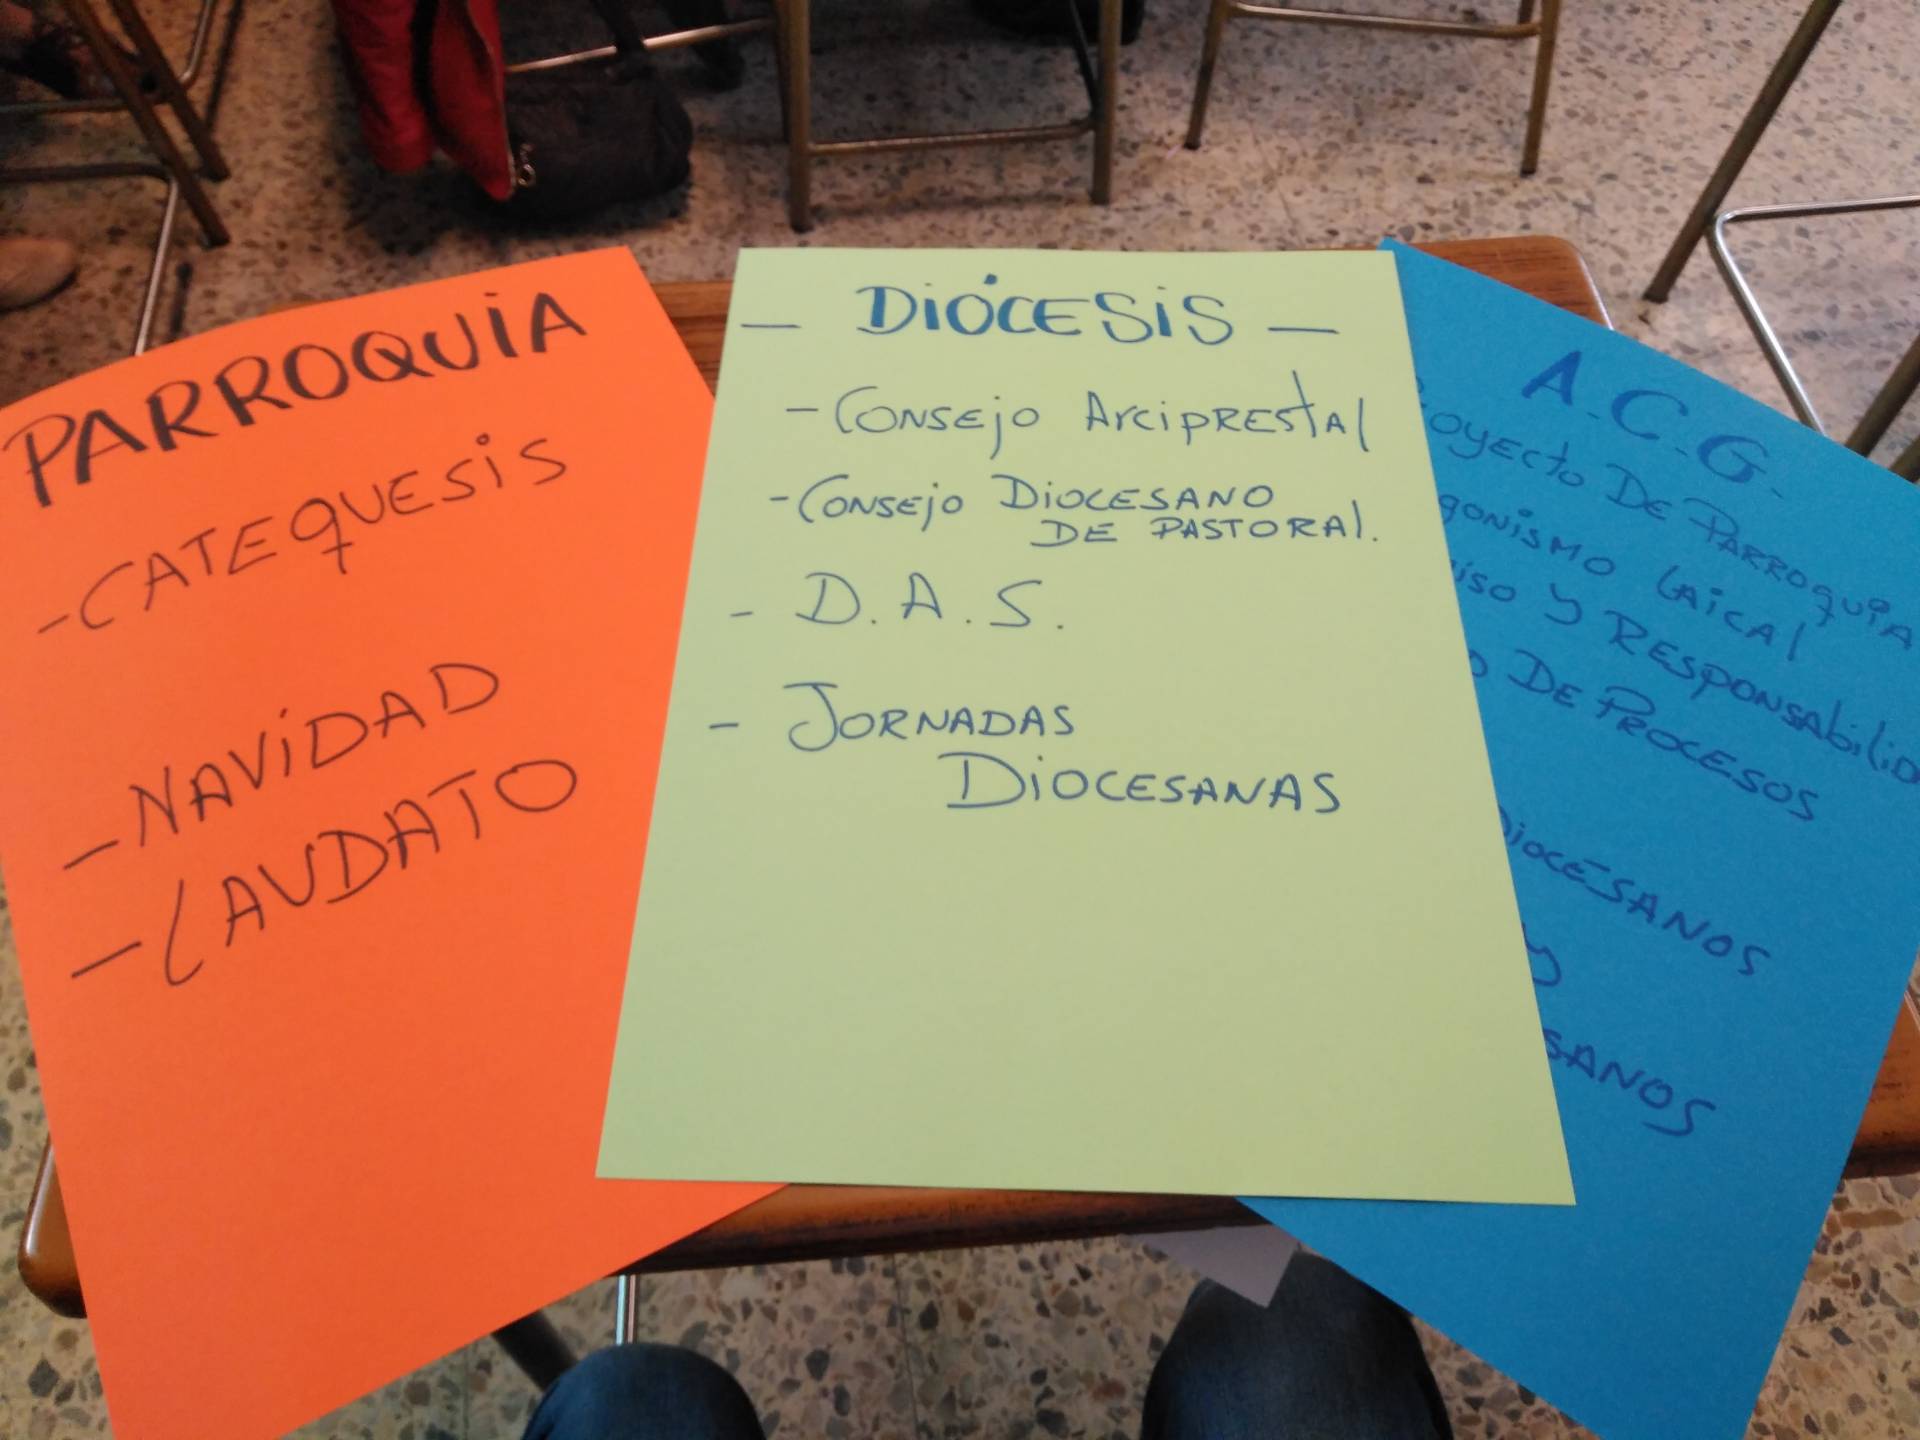 PARROQUIA
- CATEQUESIS
- NAVIDAD
- LAUDATO
- DIÓCESIS -
- CONSEJO ARCIPRESTAL
- CONSEJO DIOCESANO
DE PASTORAL.
- D.A.S.
- JORNADAS
DIOCESANAS
A.C.G.
DE PARROQUIA
LAICAL
Y RESPONSABILID
DE PROCESOS
DIOCESANOS
Y